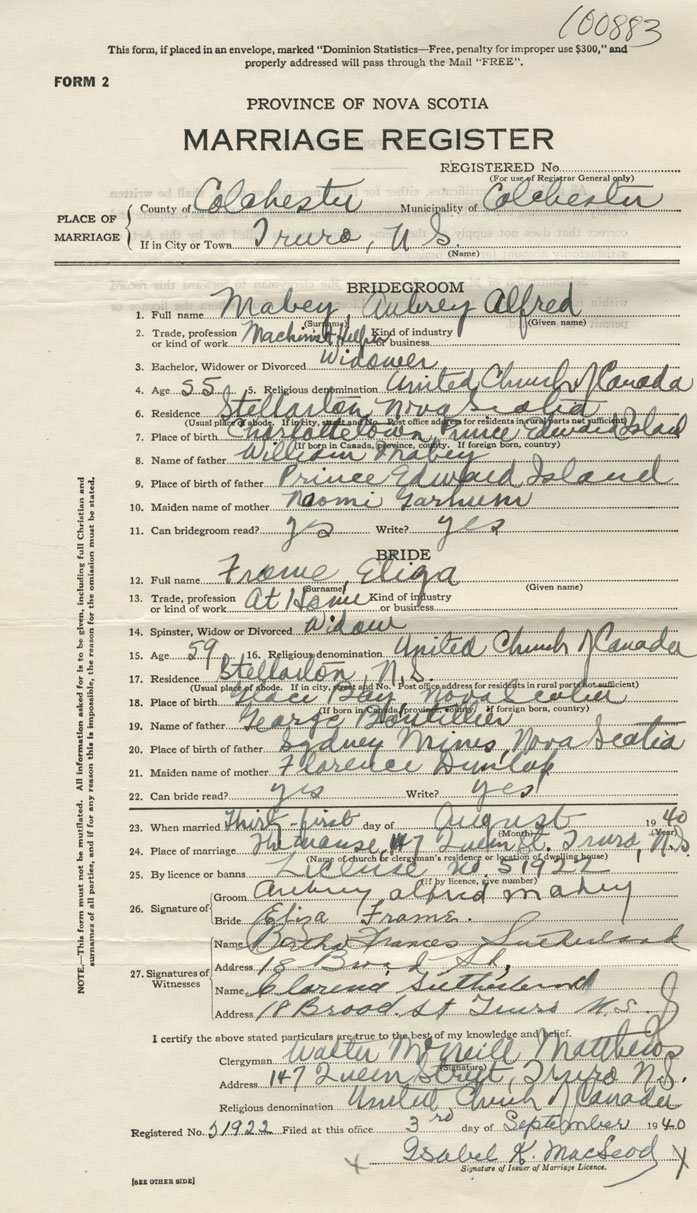 100883
This form, if placed in an envelope, marked "Dominion Statistics—Free, penalty for improper use $300," and
properly addressed will pass through the Mail "FREE".
FORM 2
PROVINCE OF NOVA SCOTIA
MARRIAGE REGISTER
REGISTERED No.
(For use of Registrar General only)
PLACE OF MARRIAGE
County of Colchester Municipality of Colchester
If in City or Town Truro, N.S.
(Name)
BRIDEGROOM
1. Full name Mabey, Aubrey Alfred
(Surname) (Given name)
2. Trade, profession or kind of work Machinist Helper Kind of industry or business
3. Bachelor, Widower or Divorced Widower
4. Age 55 5. Religious denomination United Church of Canada
6. Residence Stellarton Nova Scotia
(Usual place of abode. If in city, street and No. Post office address for residents in rural parts not sufficient)
7. Place of birth Charlottetown Prince Edward Island
(If born in Canada, province, county. If foreign born, country)
8. Name of father William Mabey
9. Place of birth of father Prince Edward Island
10. Maiden name of mother Naomi Garnum
11. Can bridegroom read? yes Write? yes
BRIDE
12. Full name Frame, Eliza
(Surname) (Given name)
13. Trade, profession or kind of work At Home Kind of industry or business
14. Spinster, Widow or Divorced Widow
15. Age 59 16. Religious denomination United Church of Canada
17. Residence Stellarton, N.S.
(Usual place of abode. If in city, street and No. Post office address for residents in rural parts not sufficient)
18. Place of birth Glace Bay Nova Scotia
(If born in Canada, province, county. If foreign born, country)
19. Name of father George Boutillier
20. Place of birth of father Sydney Mines, Nova Scotia
21. Maiden name of mother Florence Dunlop
22. Can bride read? yes Write? yes
23. When married Thirty-first day of August 1940
(Month) (Year)
24. Place of marriage The manse, 147 Queen St. Truro, N.S.
(Name of church or clergyman's residence or location of dwelling house)
25. By licence or banns License No. 51922
(If by licence, give number)
26. Signature of
Groom Aubrey alfred mabey
Bride Eliza Frame.
27. Signatures of Witnesses
Name Bertha Frances Sutherland
Address 18 Broad St,
Name Clarence Sutherland
Address 18 Broad St Truro N.S.
I certify the above stated particulars are true to the best of my knowledge and belief.
Clergyman Walter McNeill Matthews
(Signature)
Address 147 Queen Street, Truro N.S.
Religious denomination United Church of Canada
Registered No. 51922 Filed at this office 3rd day of September 1940
Isabel K. MacLeod
Signature of Issuer of Marriage Licence.
[SEE OTHER SIDE]
NOTE.—This form must not be mutilated. All information asked for is to be given, including full Christian and
surnames of all parties, and if for any reason this is impossible, the reason for the omission must be stated.